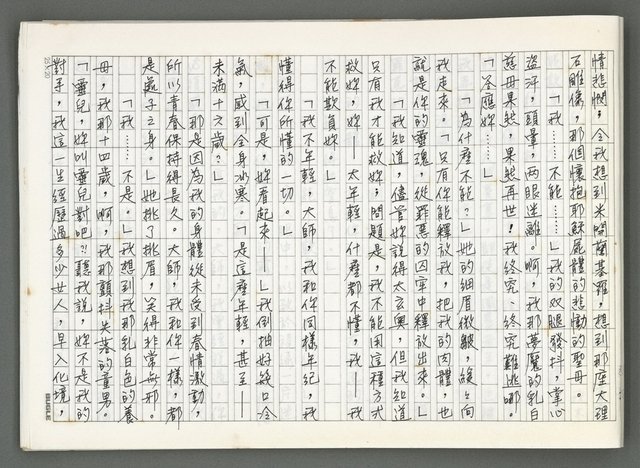 情悲憫，令我想到米開蘭基羅，想到那座大理
石雕像，那個懷抱耶穌屍體的悲慟的聖母。
「我……不能……」我的双腿發抖，掌心
盜汗，頭暈，两眼迷離。啊，我那夢魘的乳白
慈母果然，果然再世！我終究、終究難逃哪。
「圣應妳……」
「為什座不能？」她的細眉微皺，緩緩向
我走來。「只有你能釋放我，把我的肉體，也
就是你的靈魂，從罪惡的囚牢中釋放出來。」
「我知道，儘管妳說得太玄奧，但我知道
只有我才能救妳；問題是，我不能用這種方式
救妳，妳——太年輕，什座都不懂，我——我
不能欺負妳。」
「我不年輕，大師，我和你同樣年紀，我
懂得你所懂的一切。」
「可是，妳看起來——」我倒抽好幾口冷
氣，感到全身冰寒。「是這座年輕，甚至——
未滿十六歲？」
「那是因為我的身體從未受到春情激動，
所以青春保持得長久。大師，我和你一樣，都
是處子之身。」她挑了挑眉，笑得非常無邪。
「我……不是。」我想到我那乳白色的養
母，我那十四歲，啊，我那顫抖失落的童男。
「靈兒，妳叫靈兒對吧？聽我說，妳不是我的
對手，我這一生經歷過多少女人，早入化境，
25×20